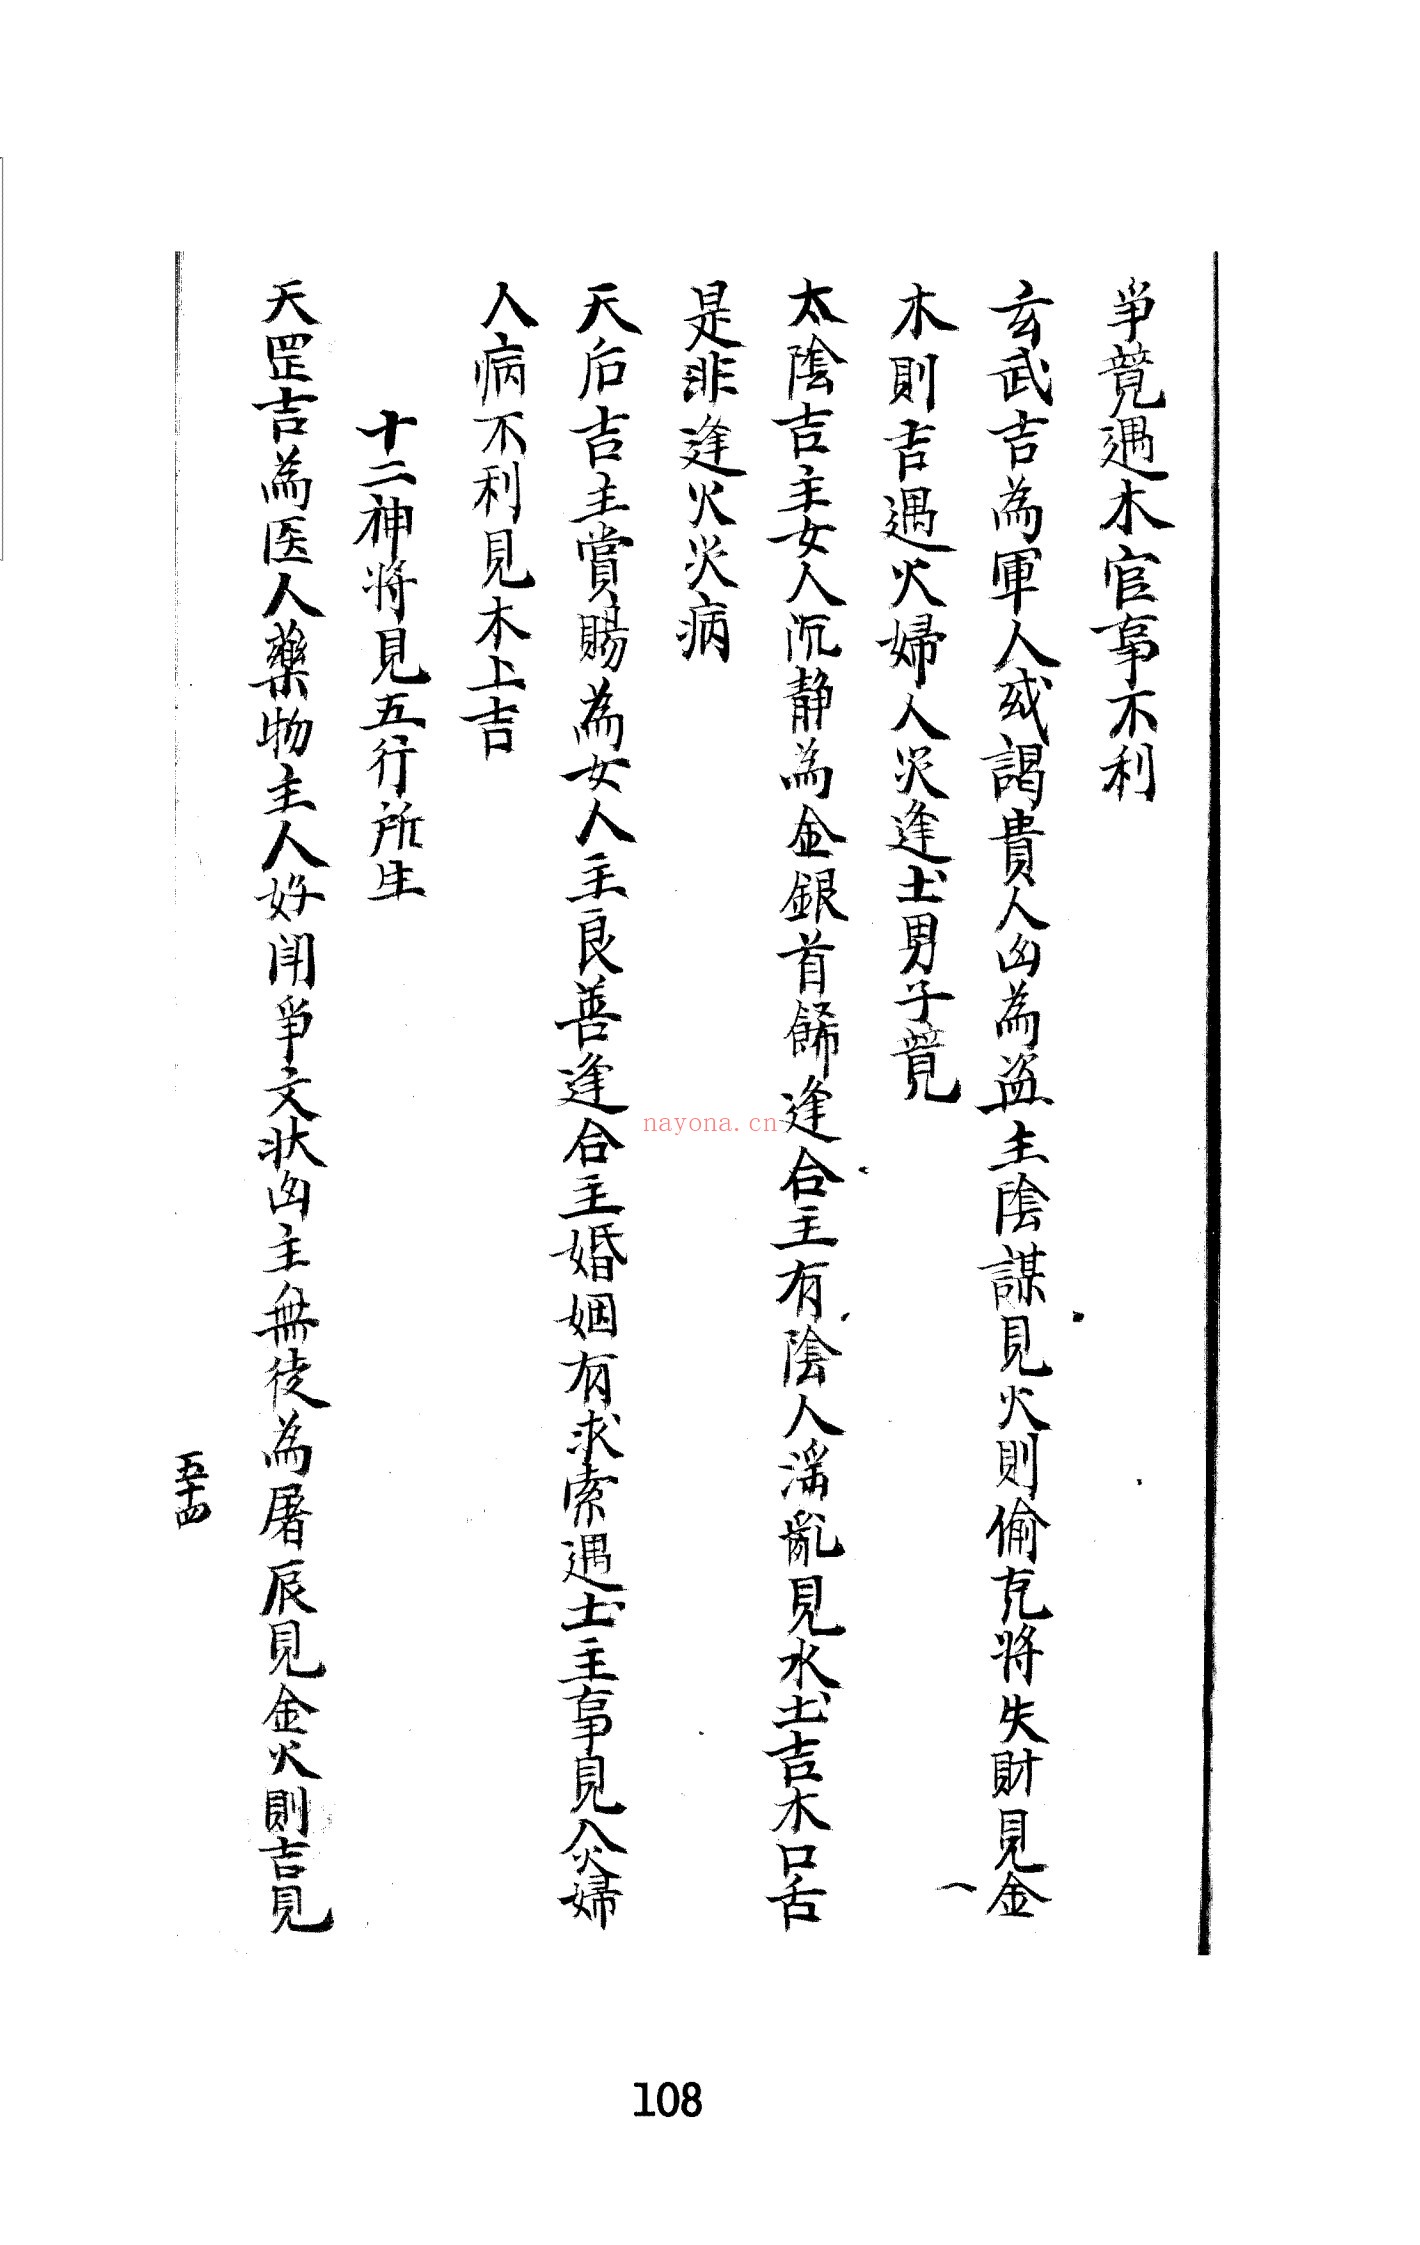 爭競遇木官事不利
玄武吉為軍人或謁貴人凶為盗主陰謀見火則偷尅將失財見金
木則吉遇火婦人災逢土男子競
太陰吉主女人沉静為金銀首餙逢合主有陰人滛亂見水土吉木口舌
是非逢火災病
天后吉主賞賜為女人主良善逢合主婚姻有求索遇土主事見火婦
人病不利見木上吉
十二神将見五行所生
天罡吉為医人藥物主人好鬥爭文状凶主無徒為屠辰見金火則吉見
五十四
nayona.cn
108